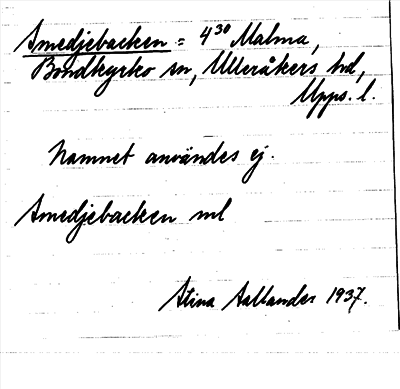 Smedjebacken = 4³⁰ Malma,
Bondkyrko sn, Ulleråkers hd,
Upps. l.
Namnet användes ej.
Smedjebacken ml
Stina Sallander 1937.